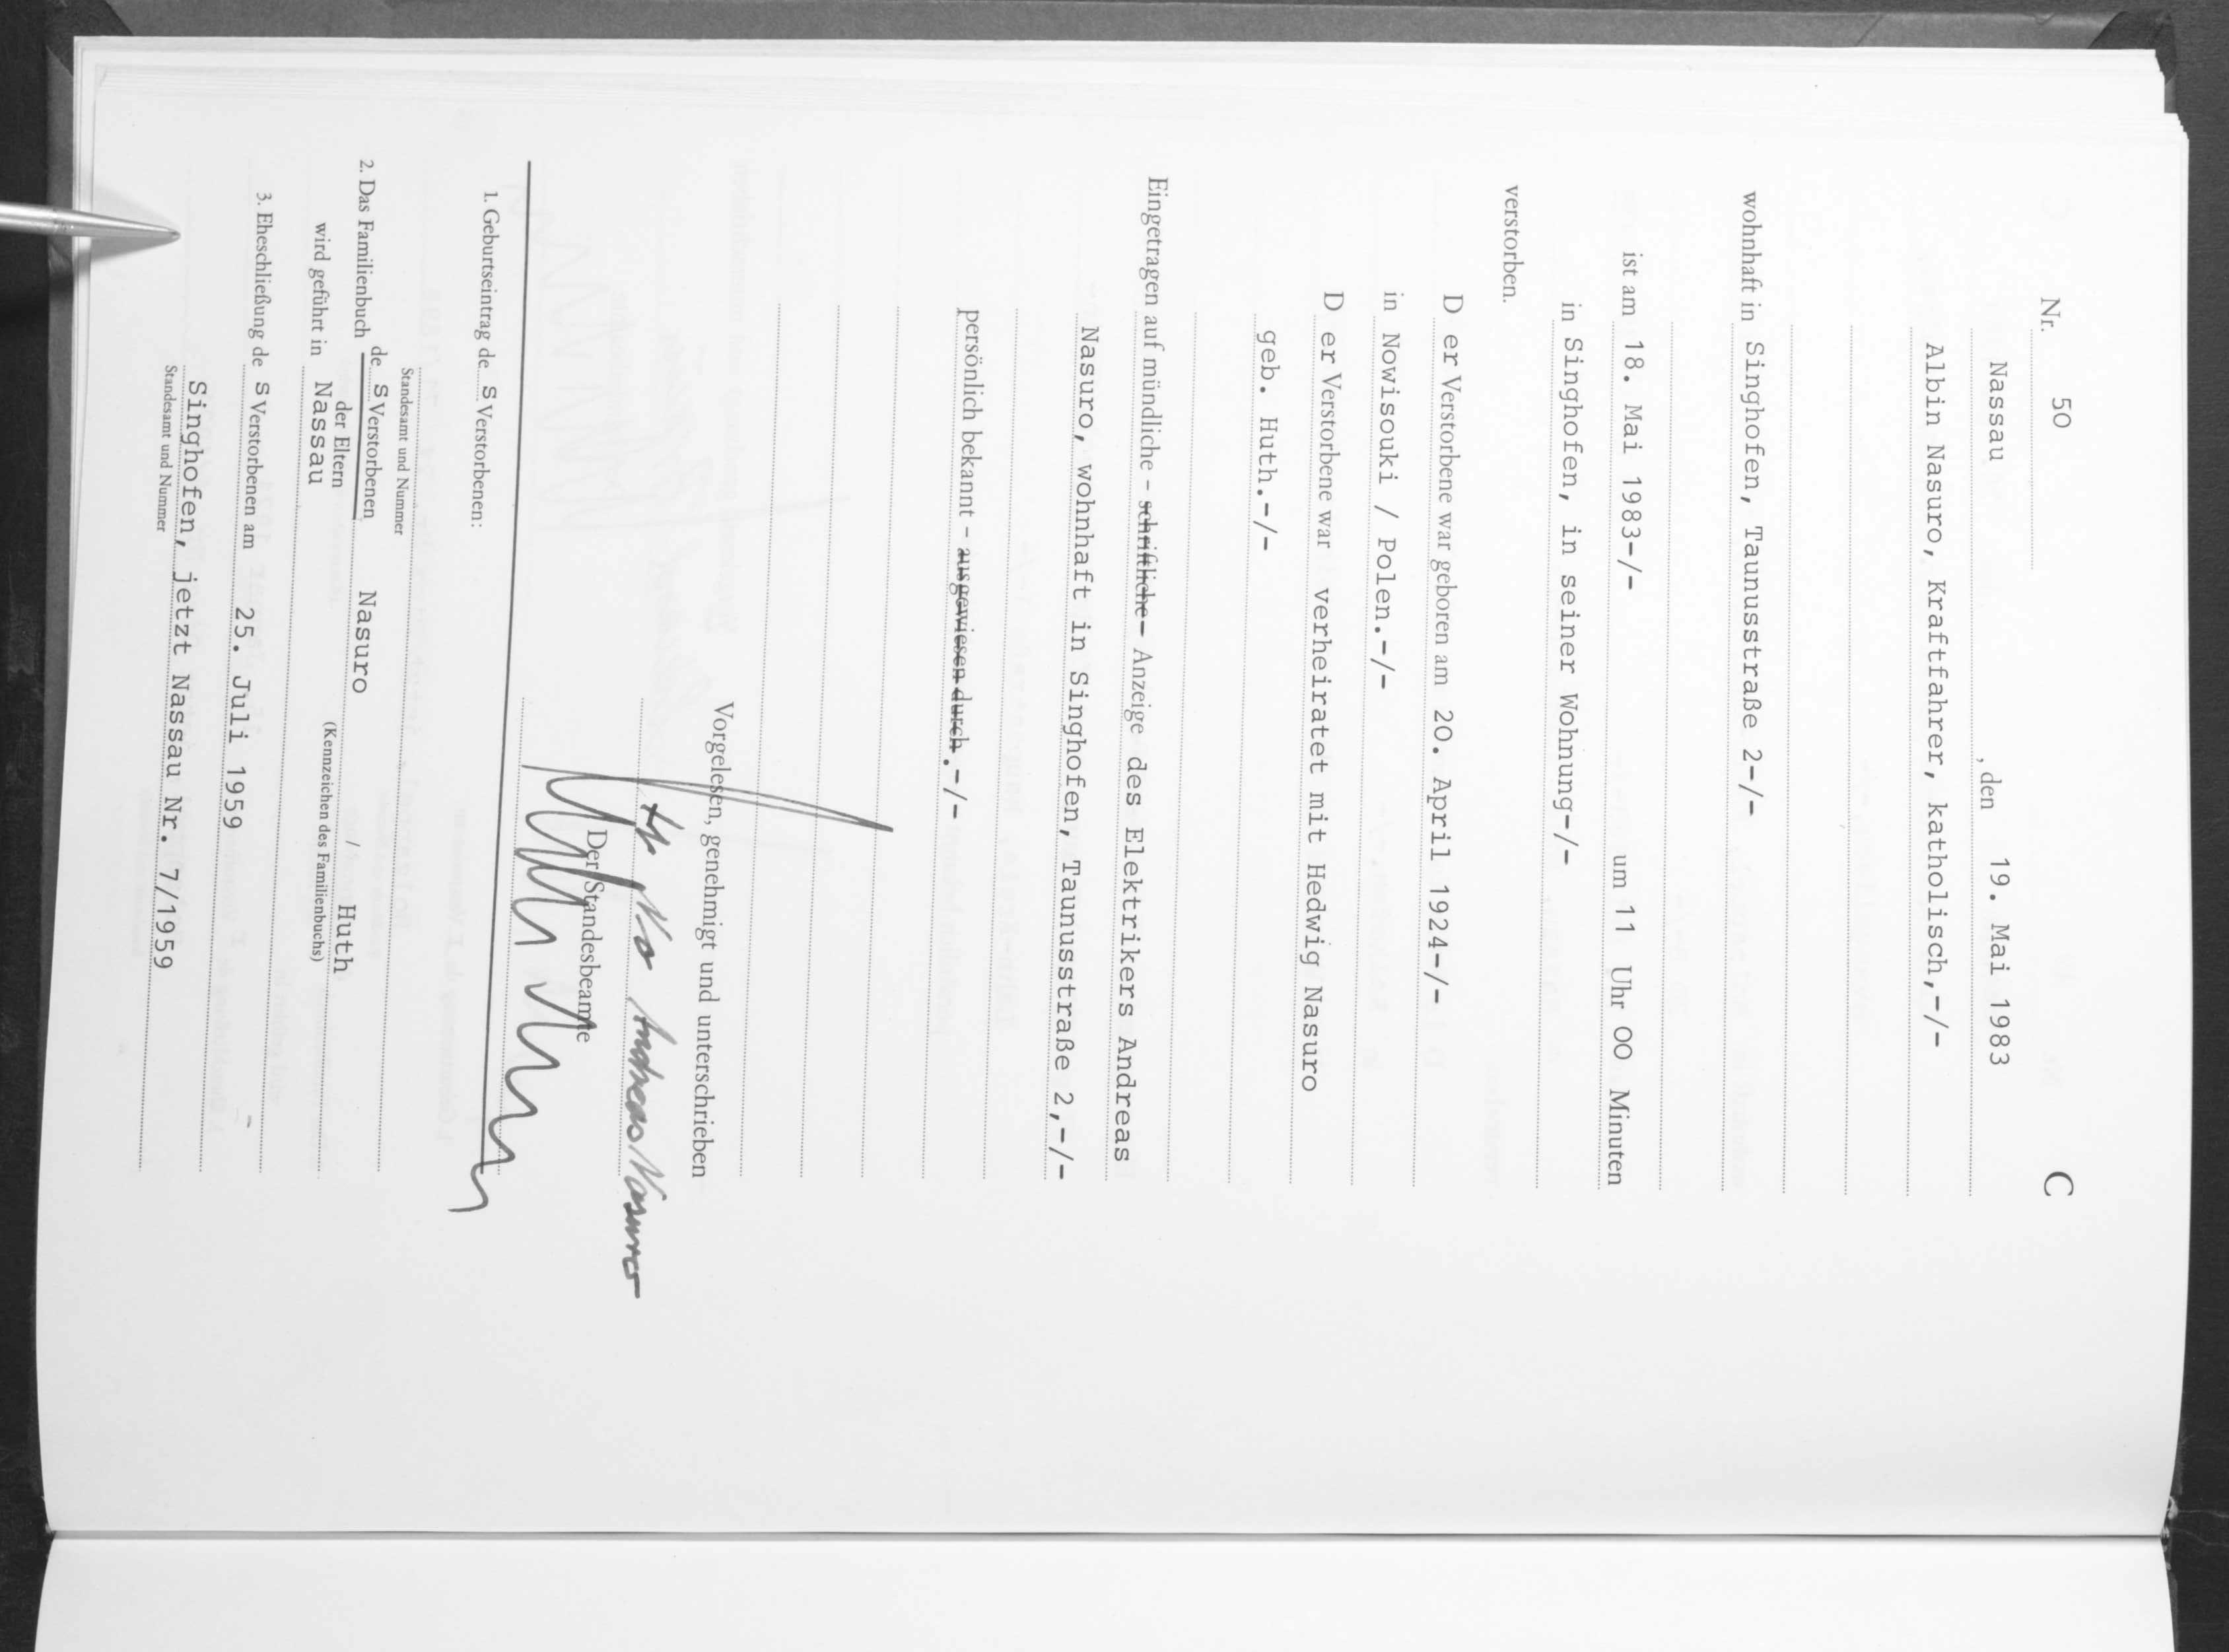 Nr. 50 C
Nassau , den 19. Mai 1983
Albin Nasuro, Kraftfahrer, katholisch,-/-
wohnhaft in Singhofen, Taunusstraße 2-/-
ist am 18. Mai 1983-/- um 11 Uhr 00 Minuten
in Singhofen, in seiner Wohnung-/-
verstorben.
D er Verstorbene war geboren am 20. April 1924-/-
in Nowisouki / Polen.-/-
D er Verstorbene war verheiratet mit Hedwig Nasuro
geb. Huth.-/-
Eingetragen auf mündliche - schriftliche - Anzeige des Elektrikers Andreas
Nasuro, wohnhaft in Singhofen, Taunusstraße 2,-/-
persönlich bekannt - ausgewiesen durch.-/-
Vorgelesen, genehmigt und unterschrieben
Andreas Nasuro
Der Standesbeamte
1. Geburtseintrag de s Verstorbenen:
Standesamt und Nummer
2. Das Familienbuch de s Verstorbenen Nasuro / Huth
der Eltern
wird geführt in Nassau (Kennzeichen des Familienbuchs)
3. Eheschließung de s Verstorbenen am 25. Juli 1959
Singhofen, jetzt Nassau Nr. 7/1959
Standesamt und Nummer